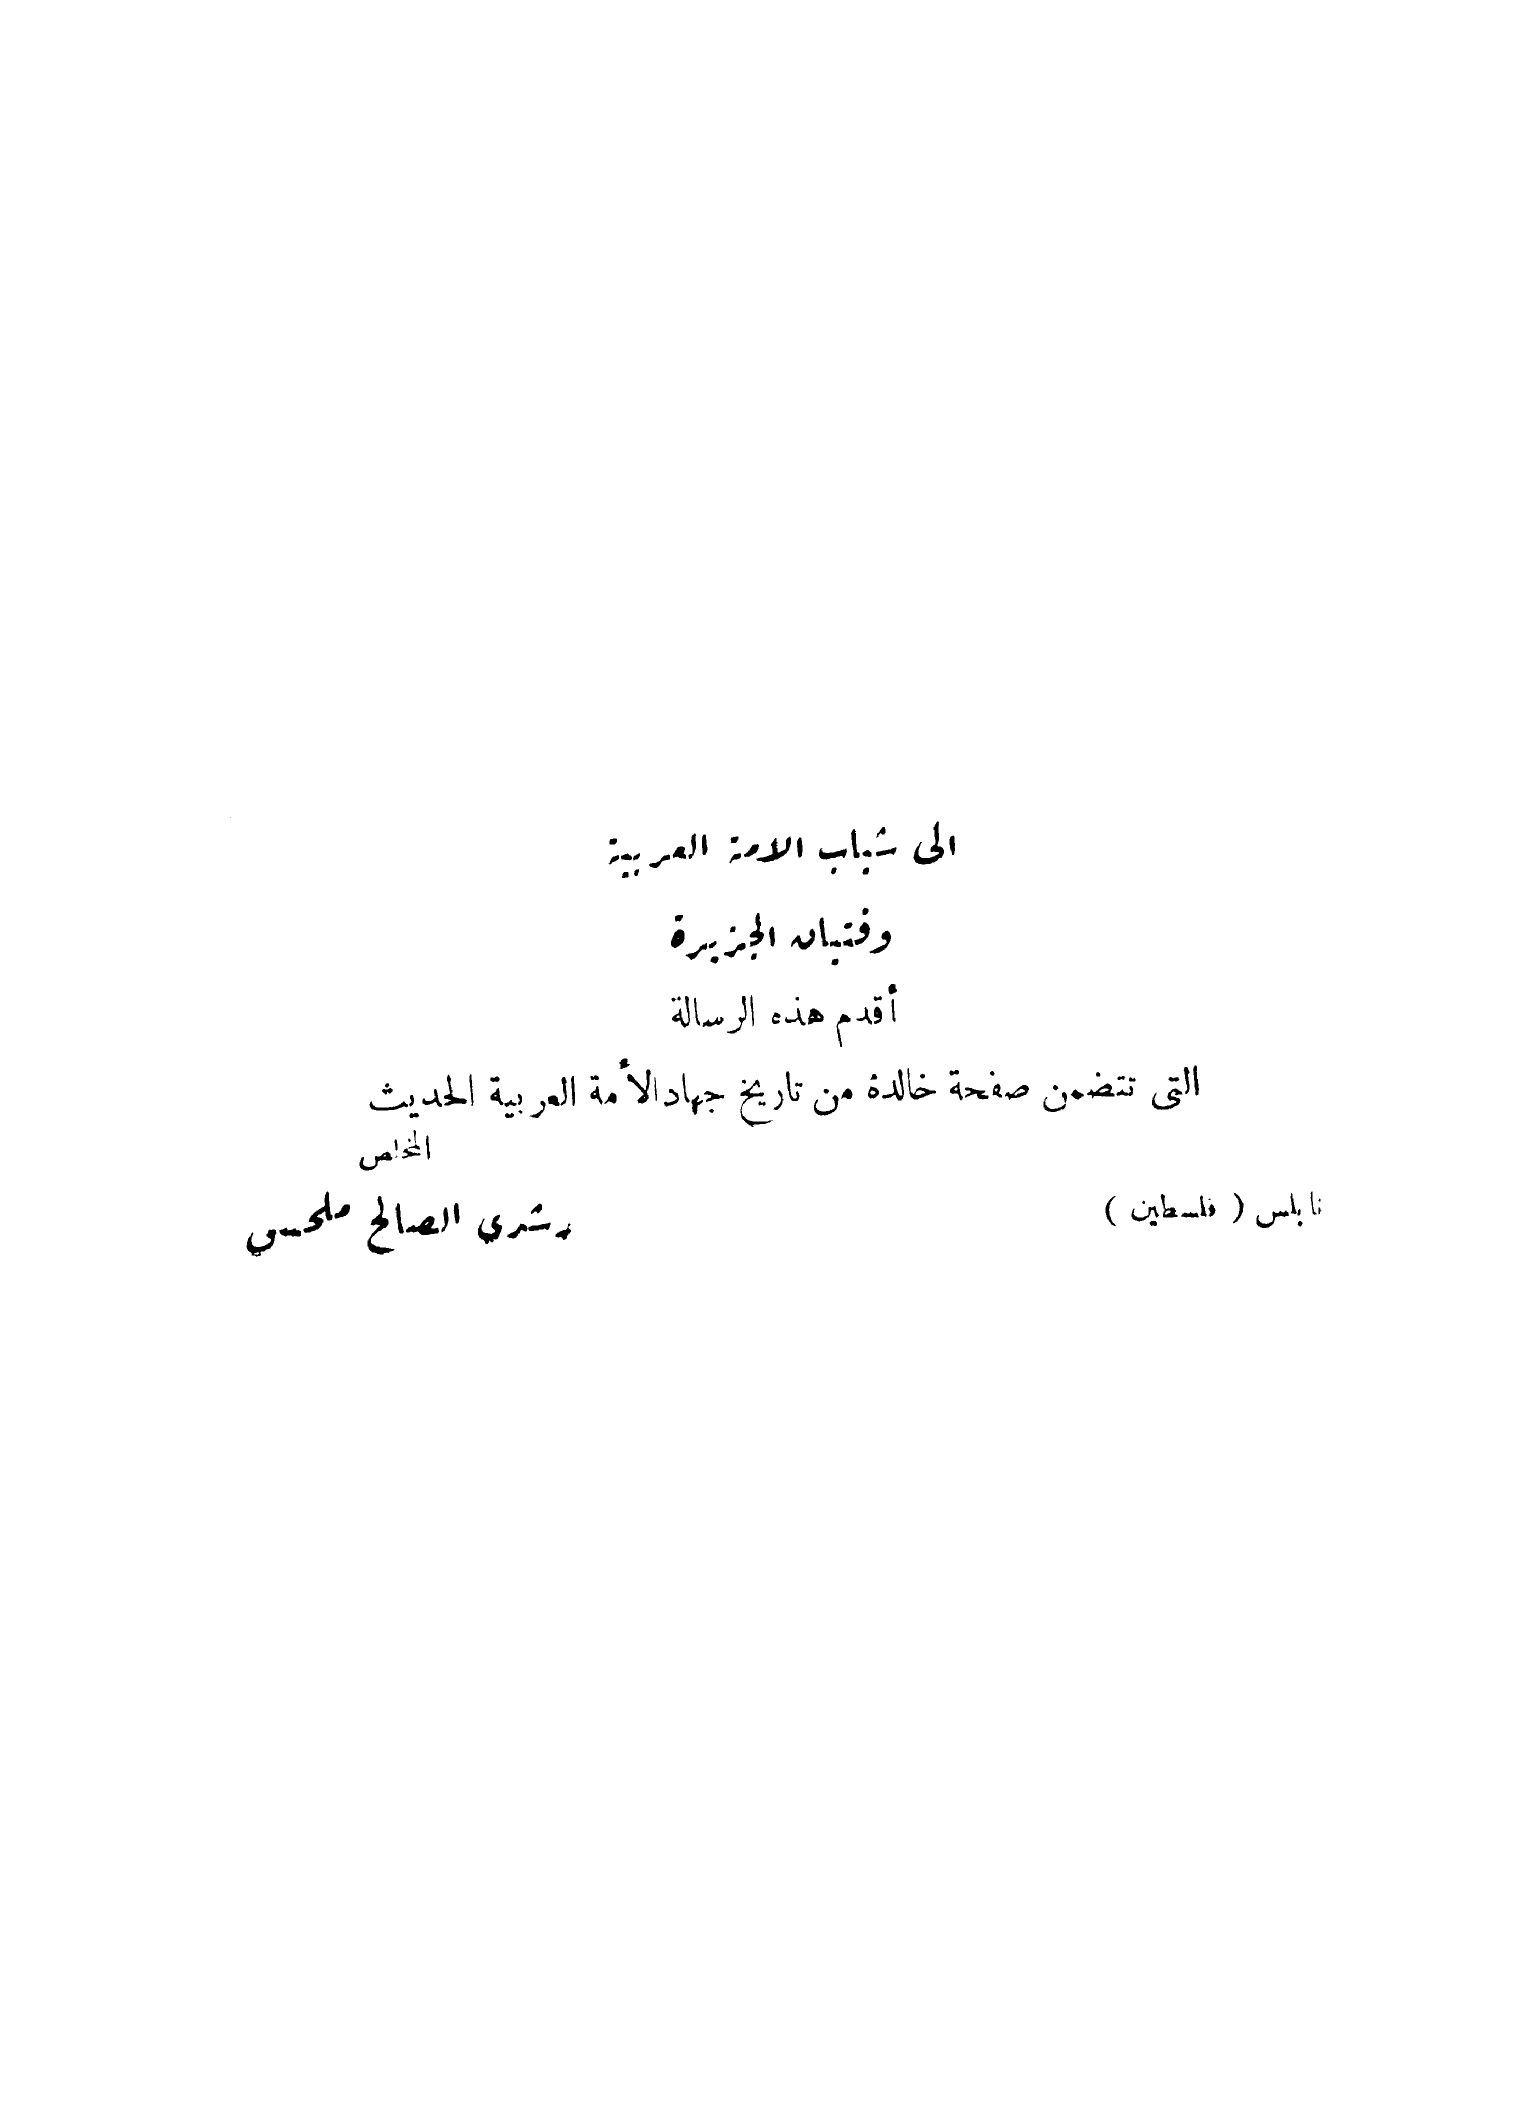 الى شباب الامة العربية
وفتيان الجزيرة
أقدم هذه الرسالة
التى تتضمن صفحة خالدة من تاريخ جهاد الأمة العربية الحديث
المخلص
نابلس ( فلسطين )
رشدي الصالح ملحس